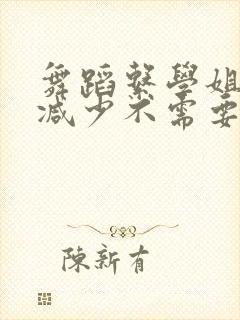 舞蹈繫學姐
減少不需要
陳新有